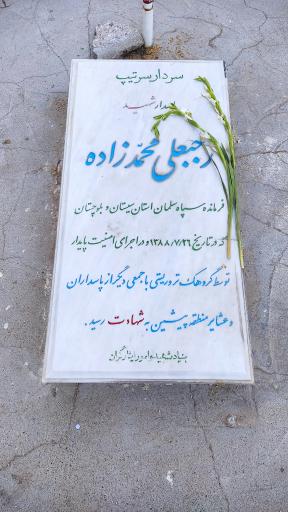 سردار سرتیپ
پاسدار شهید
رجبعلی محمدزاده
فرمانده سپاه سلمان استان سیستان و بلوچستان
که در تاریخ ۱۳۸۸/۷/۲۶ و در اجرای امنیت پایدار
توسط گروهک تروریستی با جمعی دیگر از پاسداران
و عشایر منطقه پیشین به شهادت رسید.
بنیاد شهید و امور ایثارگران